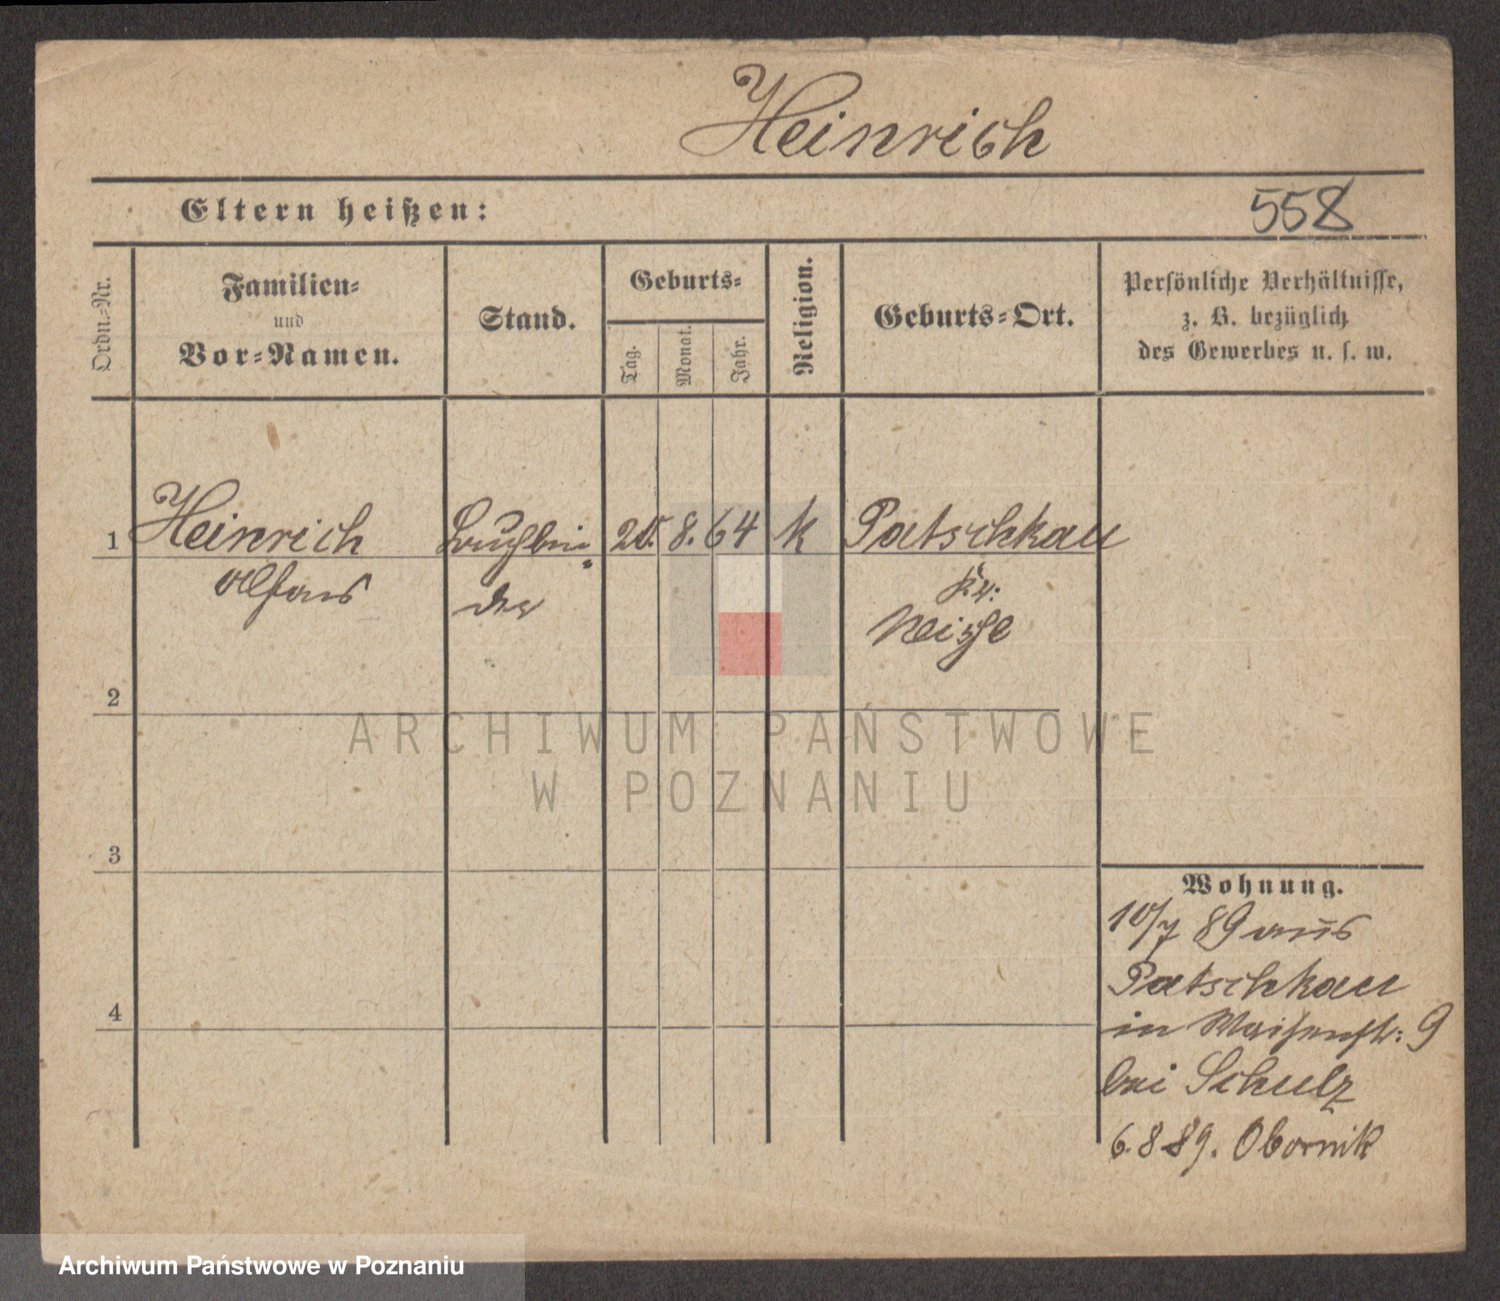 Heinrich
Eltern heißen:
558
Ordn.-Nr.
Familien-
und
Vor-Namen.
Stand.
Geburts-
Tag.
Monat.
Jahr.
Religion.
Geburts-Ort.
Persönliche Verhältnisse,
z. B. bezüglich
des Gewerbes u. s. w.
1 Heinrich Buchbin- 8. 64 k Patschkau
Alfons der Kr:
Neisse
2
3
4
Wohnung.
10/7 89 aus
Patschkau
in Waisenstr: 9
bei Schulz
6.8 89. Obornik
ARCHIWUM PAŃSTWOWE
W POZNANIU
Archiwum Państwowe w Poznaniu